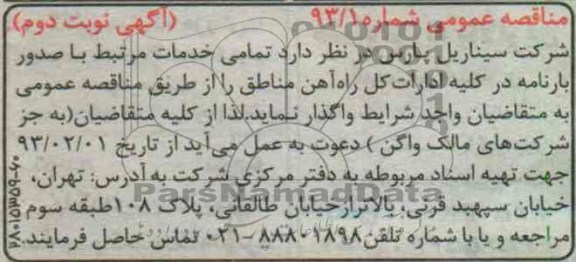 مناقصه عمومی شماره ۹۳/۱ (آگهی نوبت دوم)
شرکت سیناریل پارس در نظر دارد تمامی خدمات مرتبط با صدور
بارنامه در کلیه ادارات کل راه‌آهن مناطق را از طریق مناقصه عمومی
به متقاضیان واجد شرایط واگذار نماید. لذا از کلیه متقاضیان (به جز
شرکت‌های مالک واگن) دعوت به عمل می‌آید از تاریخ ۹۳/۰۲/۰۱
جهت تهیه اسناد مربوطه به دفتر مرکزی شرکت به آدرس: تهران،
خیابان سپهبد قرنی، بالاتر از خیابان طالقانی، پلاک ۱۰۸ طبقه سوم
مراجعه و یا با شماره تلفن ۸۸۸۰۱۸۹۸-۰۲۱ تماس حاصل فرمایند.
ParsNamadData